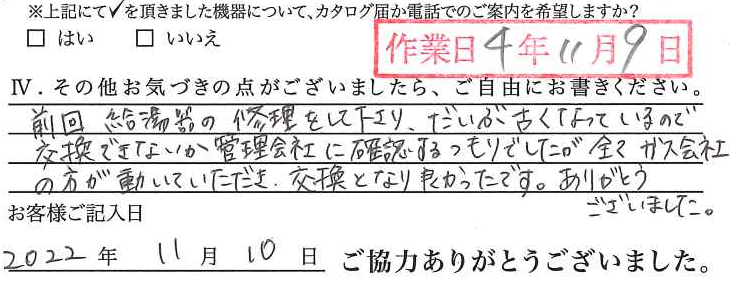 ※上記にて✓を頂きました機器について、カタログ届か電話でのご案内を希望しますか?
□ はい □ いいえ
作業日 4年 11月 9日
Ⅳ．その他お気づきの点がございましたら、ご自由にお書きください。
前回 給湯器の修理をして下さり、だいぶ古くなっているので
交換できないか管理会社に確認するつもりでしたが全てガス会社
の方が動いていただき、交換となり良かったです。ありがとう
ございました。
お客様ご記入日
2022 年 11 月 10 日 ご協力ありがとうございました。